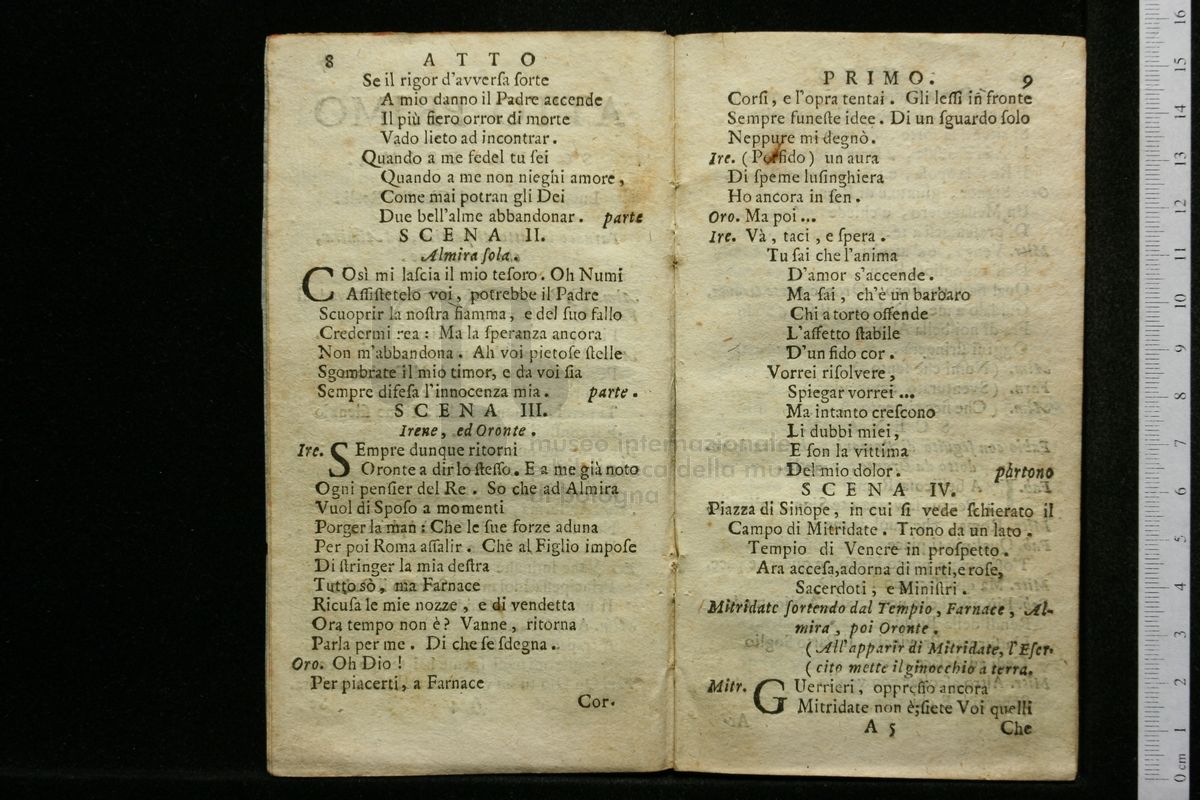 8 ATTO
Se il rigor d'avverſa ſorte
A mio danno il Padre accende
Il più fiero orror di morte
Vado lieto ad incontrar.
Quando a me fedel tu ſei
Quando a me non nieghi amore,
Come mai potran gli Dei
Due bell'alme abbandonar. parte
SCENA II.
Almira ſola.
COsì mi laſcia il mio teſoro. Oh Numi
Aſſiſtetelo voi, potrebbe il Padre
Scuoprir la noſtra fiamma, e del ſuo fallo
Credermi rea: Ma la ſperanza ancora
Non m'abbandona. Ah voi pietoſe ſtelle
Sgombrate il mio timor, e da voi ſia
Sempre difeſa l'innocenza mia. parte.
SCENA III.
Irene, ed Oronte.
Ire. SEmpre dunque ritorni
Oronte a dir lo ſteſſo. E a me già noto
Ogni penſier del Re. So che ad Almira
Vuol di Spoſo a momenti
Porger la man: Che le ſue forze aduna
Per poi Roma aſſalir. Che al Figlio impoſe
Di ſtringer la mia deſtra
Tutto sò, ma Farnace
Ricuſa le mie nozze, e di vendetta
Ora tempo non è? Vanne, ritorna
Parla per me. Di che ſe ſdegna.
Oro. Oh Dio!
Per piacerti, a Farnace
Cor.
PRIMO. 9
Corſi, e l'opra tentai. Gli leſſi in fronte
Sempre funeſte idee. Di un ſguardo ſolo
Neppure mi degnò.
Ire. (Perfido) un aura
Di ſpeme luſinghiera
Ho ancora in ſen.
Oro. Ma poi...
Ire. Và, taci, e ſpera.
Tu ſai che l'anima
D'amor s'accende.
Ma ſai, ch'è un barbaro
Chi a torto offende
L'affetto ſtabile
D'un fido cor.
Vorrei riſolvere,
Spiegar vorrei...
Ma intanto creſcono
Li dubbi miei,
E ſon la vittima
Del mio dolor. pàrtono
SCENA IV.
Piazza di Sinope, in cui ſi vede ſchierato il
Campo di Mitridate. Trono da un lato.
Tempio di Venere in proſpetto.
Ara acceſa, adorna di mirti, e roſe,
Sacerdoti, e Miniſtri.
Mitridate ſortendo dal Tempio, Farnace, Al-
mira, poi Oronte.
(All'apparir di Mitridate, l'Eſer-
(cito mette il ginocchio a terra.
Mitr. GUerrieri, oppreſſo ancora
Mitridate non è; ſiete Voi quelli
A 5 Che
museo internazionale
della musica
di bologna
0 cm 1 2 3 4 5 6 7 8 9 10 11 12 13 14 15 16